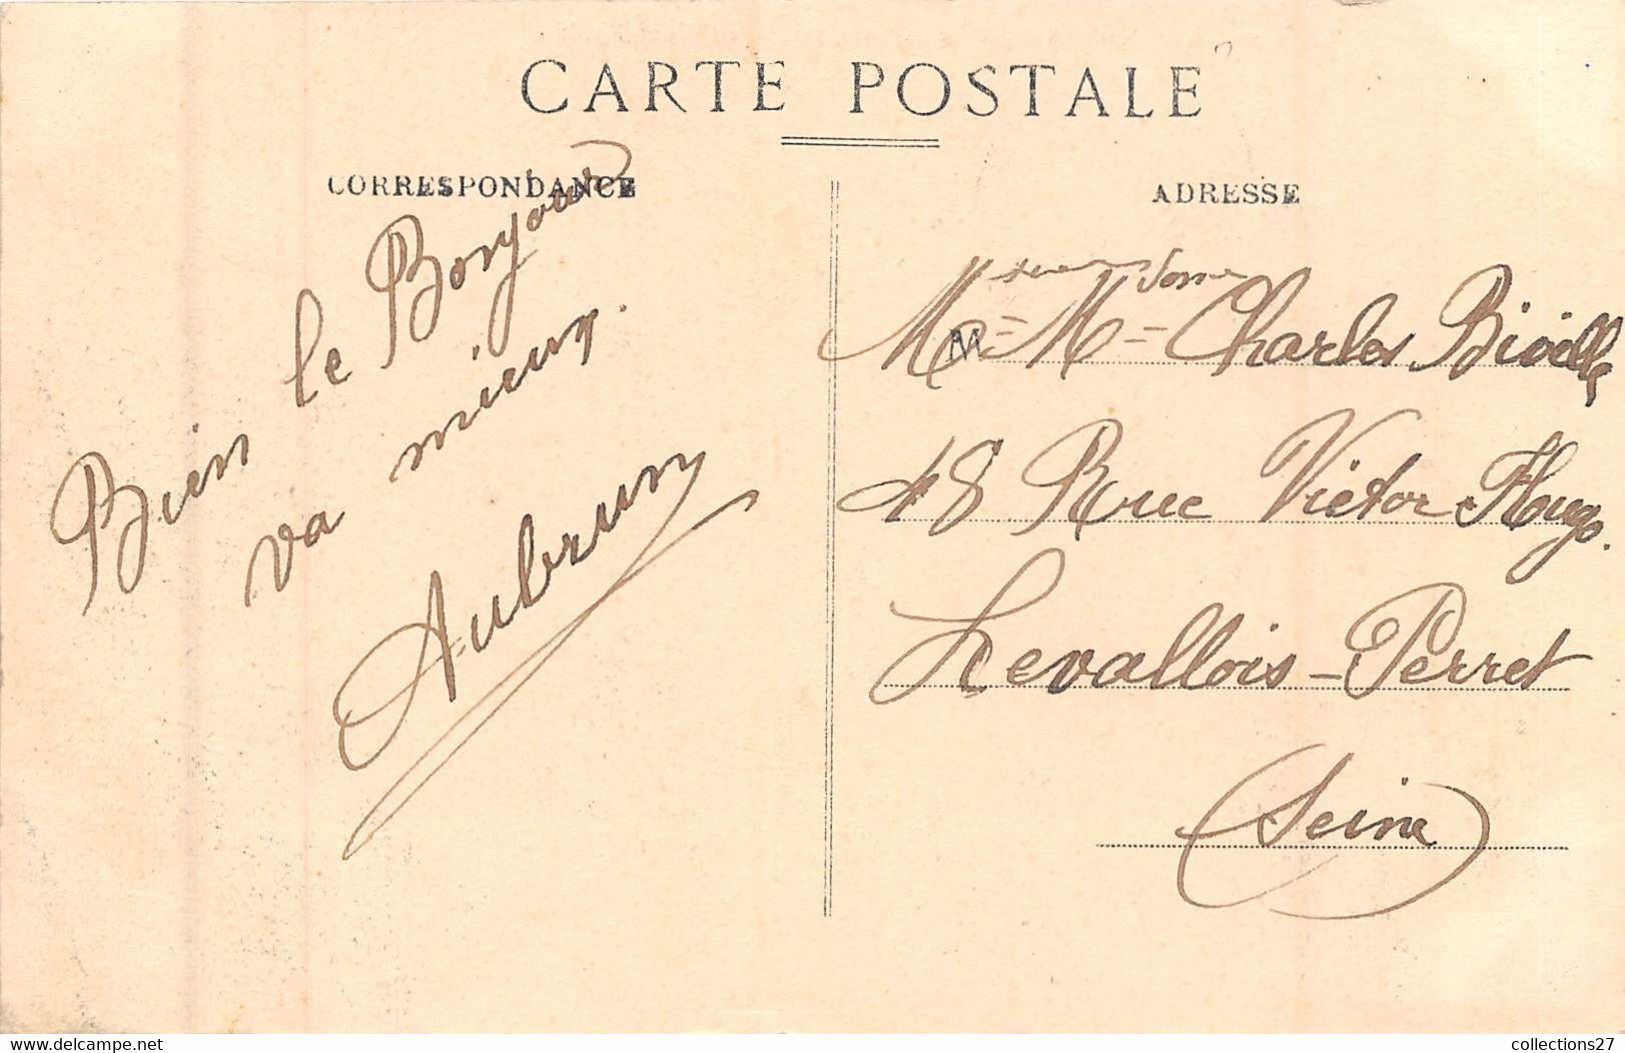 CARTE POSTALE
CORRESPONDANCE
Bien le Bonjour
va mieux.
Aubrun
ADRESSE
M M Charles
48 Rue Victor Hugo.
Levallois-Perret
(Seine)
collections27